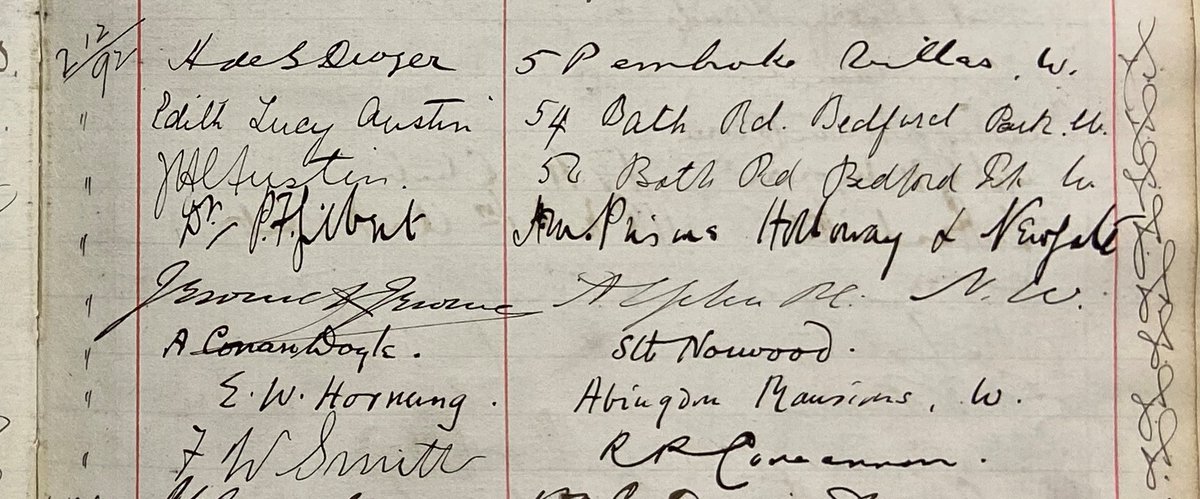 2/12/92 H de S Dwyer 5 Pembroke Villas. W.
" Edith Lucy Austin 54 Bath Rd. Bedford Park. W.
" Austin. 52 Bath Rd Bedford Pk W
" Dr. P. F. Gilbert H.M. Prisons Holloway & Newgate
" Jerome K Jerome Alpha Pl. N. W.
" A Conan Doyle. Sth Norwood.
" E. W. Hornung. Abingdon Mansions, W.
" F W Smith R R